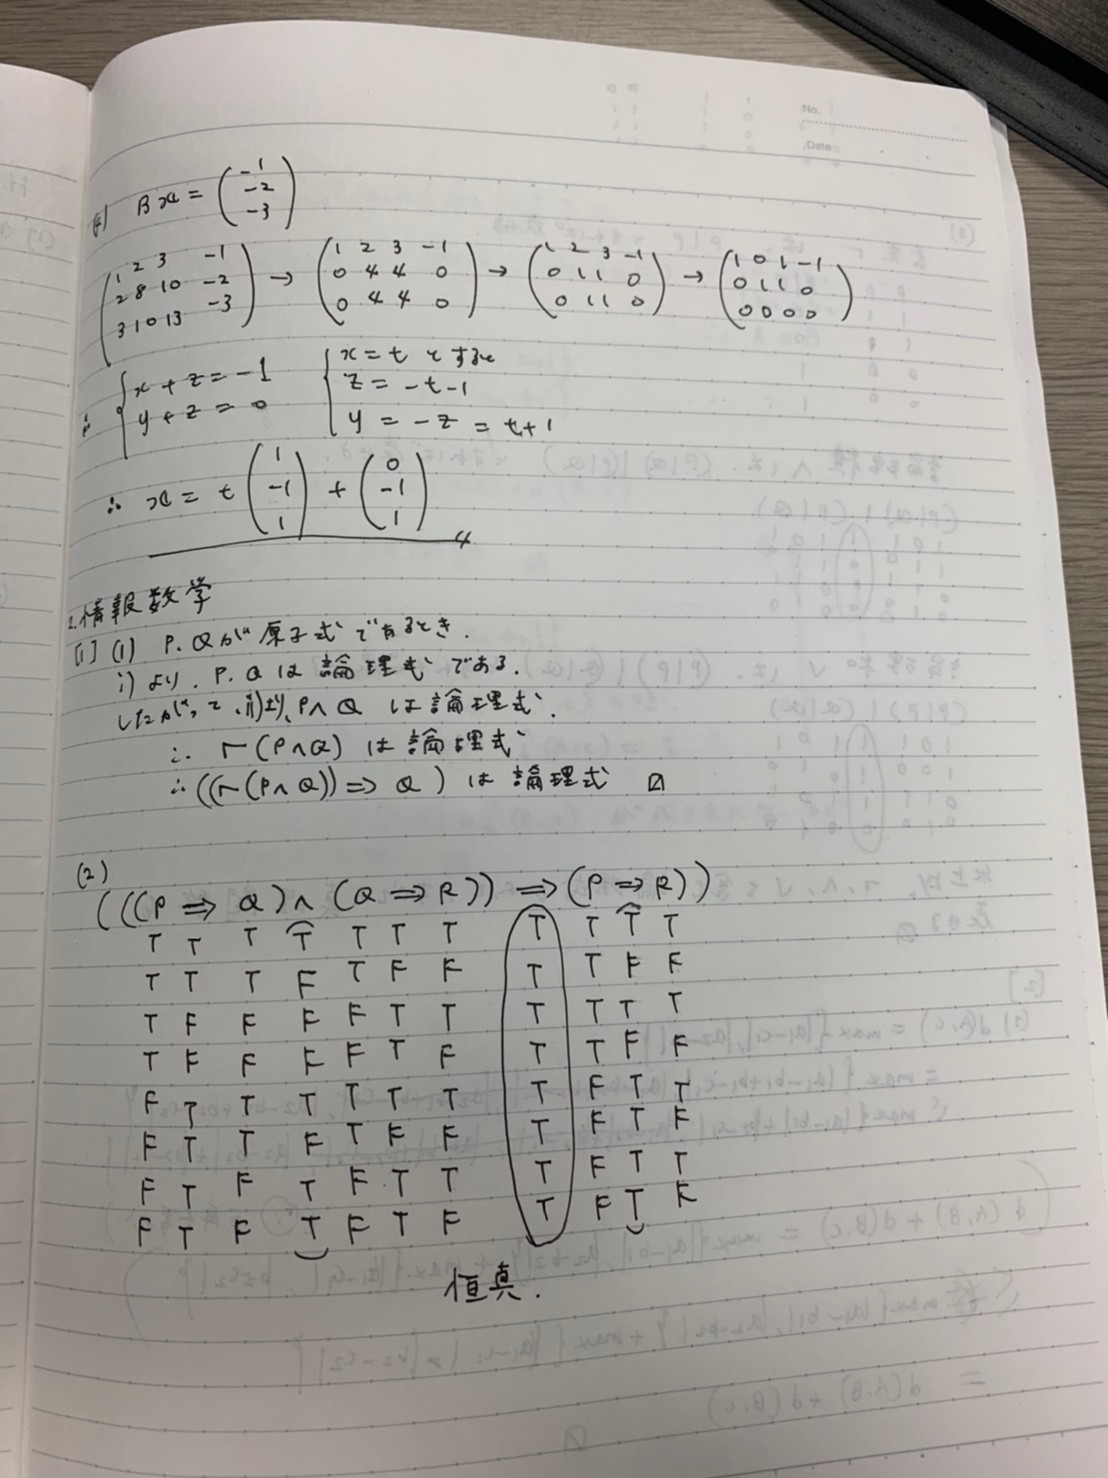 No.
Date
(4) Bx = (-1 -2 -3)
(1 2 3 -1 / 2 8 10 -2 / 3 10 13 -3) → (1 2 3 -1 / 0 4 4 0 / 0 4 4 0) → (1 2 3 -1 / 0 1 1 0 / 0 1 1 0) → (1 0 1 -1 / 0 1 1 0 / 0 0 0 0)
∴ { x + z = -1 { x = t とすると
y + z = 0 z = -t-1
y = -z = t+1
∴ x = t (1 -1 1) + (0 -1 1)
2.情報数学
[1] (1) P.Qが原子式であるとき.
i)より. P.Qは論理式である.
したがって,ii)より,P∧Qは論理式.
∴ ¬(P∧Q)は論理式
∴((¬(P∧Q))⇒Q)は論理式
(2)
(((P⇒Q)∧(Q⇒R))⇒(P⇒R))
T T T T T T T T T T T
T T T F T F F T T F F
T F F F F T T T T T T
T F F F F T F T T F F
F T T T T T T T F T T
F T T F T F F T F T F
F T F T F T T T F T T
F T F T F T F T F T F
恒真.